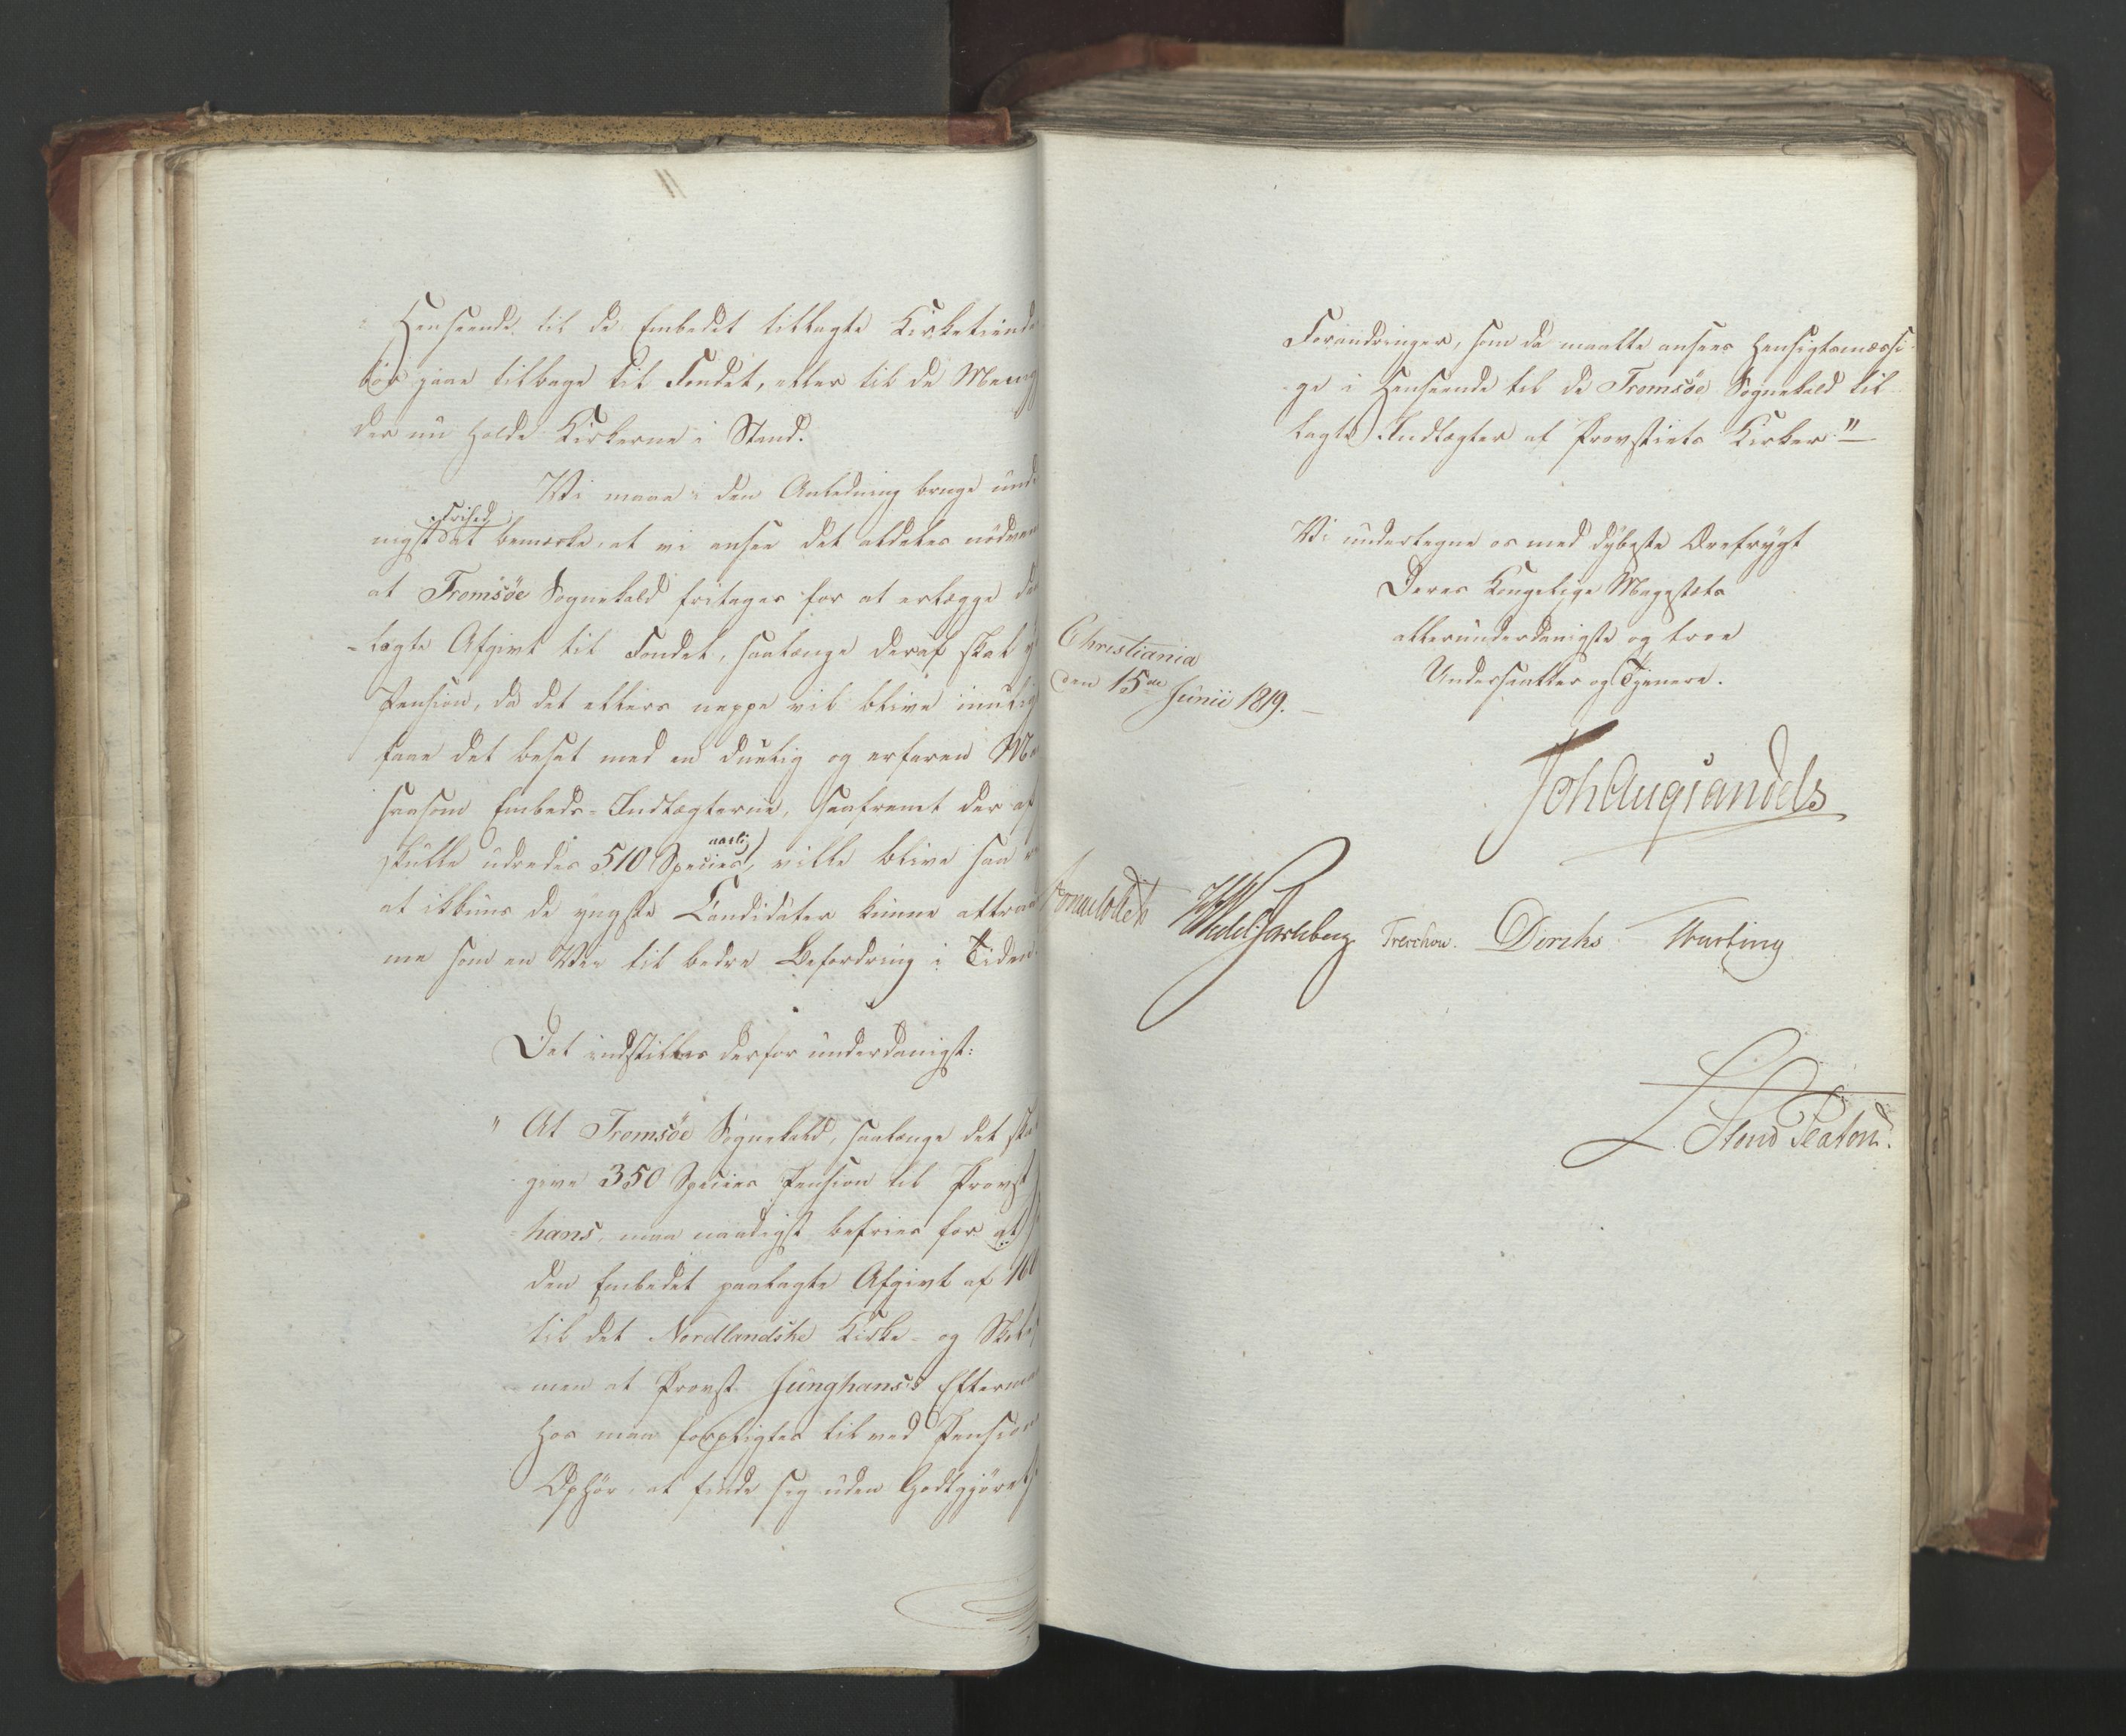 Henseende til de Embedet tillagte Kirketiende
bör gaae tilbage til Fondet, eller til de Menig
der nu holde Kirkerne i Stand.
Vi maae i den Anledning bruge unde
frihed
nigst at bemærke, at vi ansee det aldeles nödven
at Tromsöe Sognekald fritages for at erlægge de
lagte Afgivt til Fondet, saalænge deraf skal
Pension, da det ellers neppe vil blive muelig
faae det besat med en duelig og erfaren Ma
saasom Embeds-Indtægterne, saafremt der af
aarlig
skulle udredes 510 Species, ville blive saa
at ikkuns de yngste Candidater kunne attraa
me som en Vei til bedre Befordring i Tiden.
Det indstilles derfor underdanigst:
" At Tromsöe Sognekald, saalænge det ska
give 350 Species Pension til Provst
hans, maa naadigst befries for at
den Embedet paalagte Afgivt af 160
til det Nordlandske Kirke- og Skole
men at Provst Junghans's Efterm
her maa forpligtes til ved Pension
Ophör, at finde sig uden Godtgjörelse
Forandringer, som da maatte ansees hensigtsmæssi
ge i Henseende til de Tromsöe Sognekald til
lagte Indtægter af Provstiets Kirker."
Vi undertegne os med dybeste Ærefrygt
Deres Kongelige Majestets
allerunderdanigste og troe
Undersaatter og Tjenere.
Christiania
den 15de Junii 1819.
Joh Aug Sandels
Sommerhielm Wedel Jarlsberg Treschow. Diriks Krefting
L. Steno Seaton.